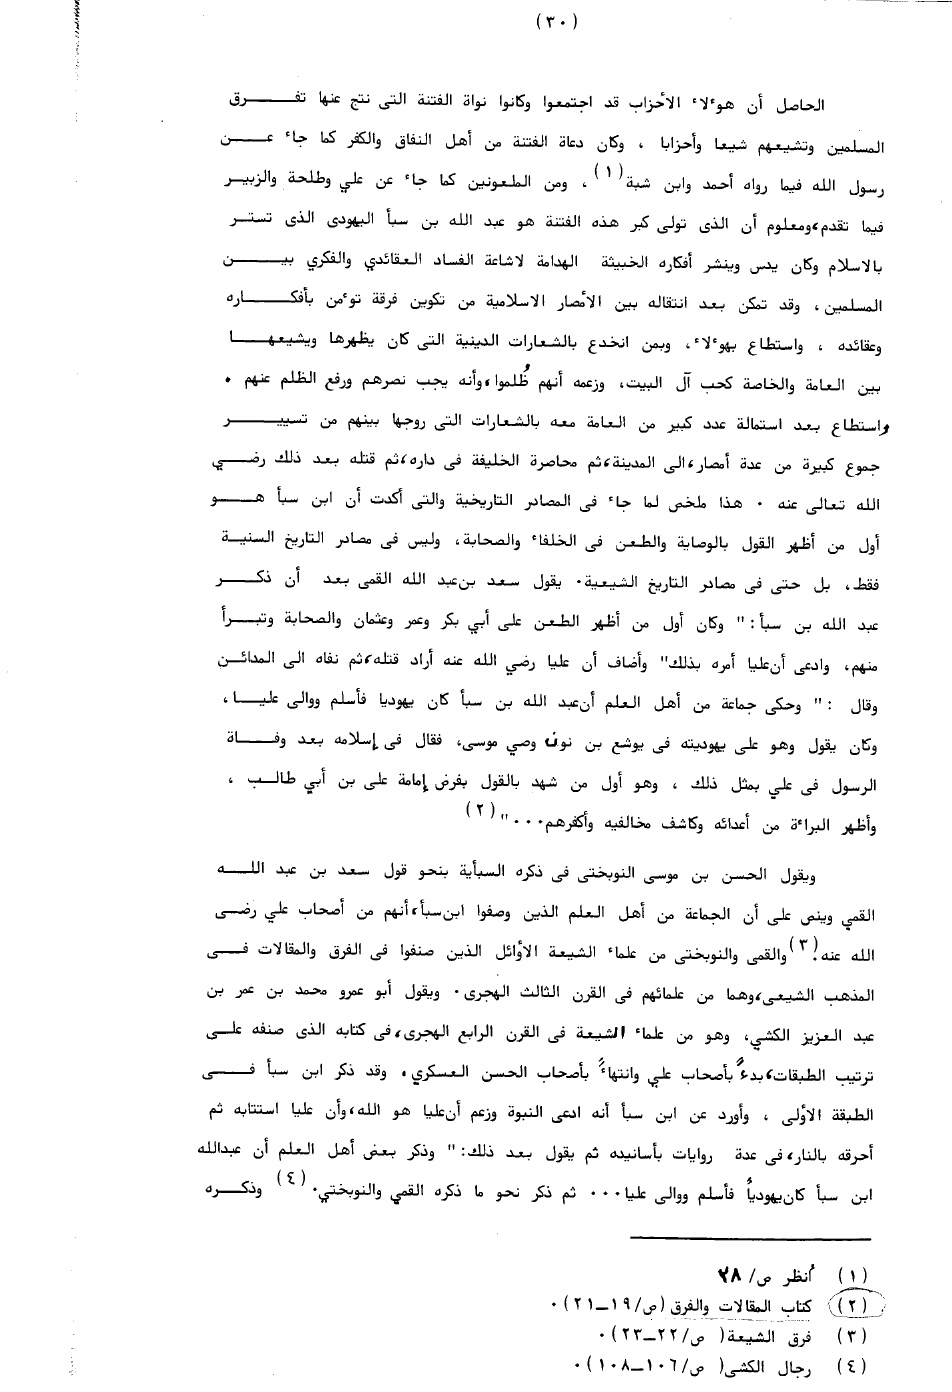 (٣٠)
الحاصل أن هؤلاء الأحزاب قد اجتمعوا وكانوا نواة الفتنة التى نتج عنها تفـــرق
المسلمين وتشيعهم شيعا وأحزابا ، وكان دعاة الفتنة من أهل النفاق والكفر كما جاء عـــن
رسول الله فيما رواه أحمد وابن شبة(١) ، ومن الملعونين كما جاء عن علي وطلحة والزبيـر
فيما تقدم،ومعلوم أن الذى تولى كبر هذه الفتنة هو عبد الله بن سبأ اليهودى الذى تستـــر
بالاسلام وكان يدس وينشر أفكاره الخبيثة الهدامة لاشاعة الفساد العقائدي والفكري بيـــن
المسلمين، وقد تمكن بعد انتقاله بين الأمصار الاسلامية من تكوين فرقة تؤمن بأفكـــاره
وعقائده ، واستطاع بهؤلاء، وبمن انخدع بالشعارات الدينية التى كان يظهرها ويشيعهـــا
بين العامة والخاصة كحب آل البيت، وزعمه أنهم ظُلموا،وأنه يجب نصرهم ورفع الظلم عنهم .
واستطاع بعد استمالة عدد كبير من العامة معه بالشعارات التى روجها بينهم من تسييـــر
جموع كبيرة من عدة أمصار،الى المدينة،ثم محاصرة الخليفة فى داره،ثم قتله بعد ذلك رضـــي
الله تعالى عنه . هذا ملخص لما جاء فى المصادر التاريخية والتى أكدت أن ابن سبأ هـــو
أول من أظهر القول بالوصاية والطعن فى الخلفاء والصحابة، وليس فى مصادر التاريخ السنيـة
فقط، بل حتى فى مصادر التاريخ الشيعية. يقول سعد بن عبد الله القمى بعد أن ذكـــر
عبد الله بن سبأ: " وكان أول من أظهر الطعن على أبي بكر وعمر وعثمان والصحابة وتبـــرأ
منهم، وادعى أن عليا أمره بذلك" وأضاف أن عليا رضي الله عنه أراد قتله،ثم نفاه الى المدائـــن
وقال : " وحكى جماعة من أهل العلم أن عبد الله بن سبأ كان يهوديا فأسلم ووالى عليـــا،
وكان يقول وهو على يهوديته فى يوشع بن نون وصي موسى، فقال فى إسلامه بعد وفـــاة
الرسول فى علي بمثل ذلك ، وهو أول من شهد بالقول بفرض إمامة على بن أبي طالـــب ،
وأظهر البراءة من أعدائه وكاشف مخالفيه وأكفرهم..."(٢)
ويقول الحسن بن موسى النوبختى فى ذكره السبأية بنحو قول سعد بن عبد اللـــه
القمي وينص على أن الجماعة من أهل العلم الذين وصفوا ابن سبأ،أنهم من أصحاب علي رضـى
الله عنه.(٣) والقمى والنوبختى من علماء الشيعة الأوائل الذين صنفوا فى الفرق والمقالات فـــى
المذهب الشيعى،وهما من علمائهم فى القرن الثالث الهجرى. ويقول أبو عمرو محمد بن عمر بن
عبد العزيز الكشي، وهو من علماء الشيعة فى القرن الرابع الهجرى،فى كتابه الذى صنفه علـــى
ترتيب الطبقات،بدءً بأصحاب علي وانتهاءً بأصحاب الحسن العسكري، وقد ذكر ابن سبأ فـــى
الطبقة الأولى ، وأورد عن ابن سبأ أنه ادعى النبوة وزعم أن عليا هو الله،وأن عليا استتابه ثم
أحرقه بالنار، فى عدة روايات بأسانيده ثم يقول بعد ذلك: " وذكر بعض أهل العلم أن عبدالله
ابن سبأ كان يهودياً فأسلم ووالى عليا... ثم ذكر نحو ما ذكره القمي والنوبختي.(٤) وذكـــره
(١) أنظر ص/ ٢٨
(٢) كتاب المقالات والفرق (ص/١٩ــ٢١).
(٣) فرق الشيعة( ص/٢٢ــ٢٣).
(٤) رجال الكشى( ص/١٠٦ــ١٠٨).